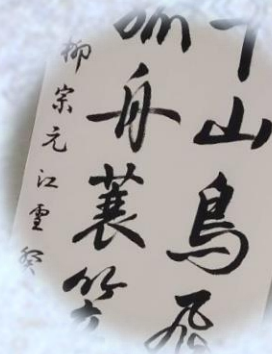 千山鳥飛
孤舟蓑笠
柳宗元江雪癸